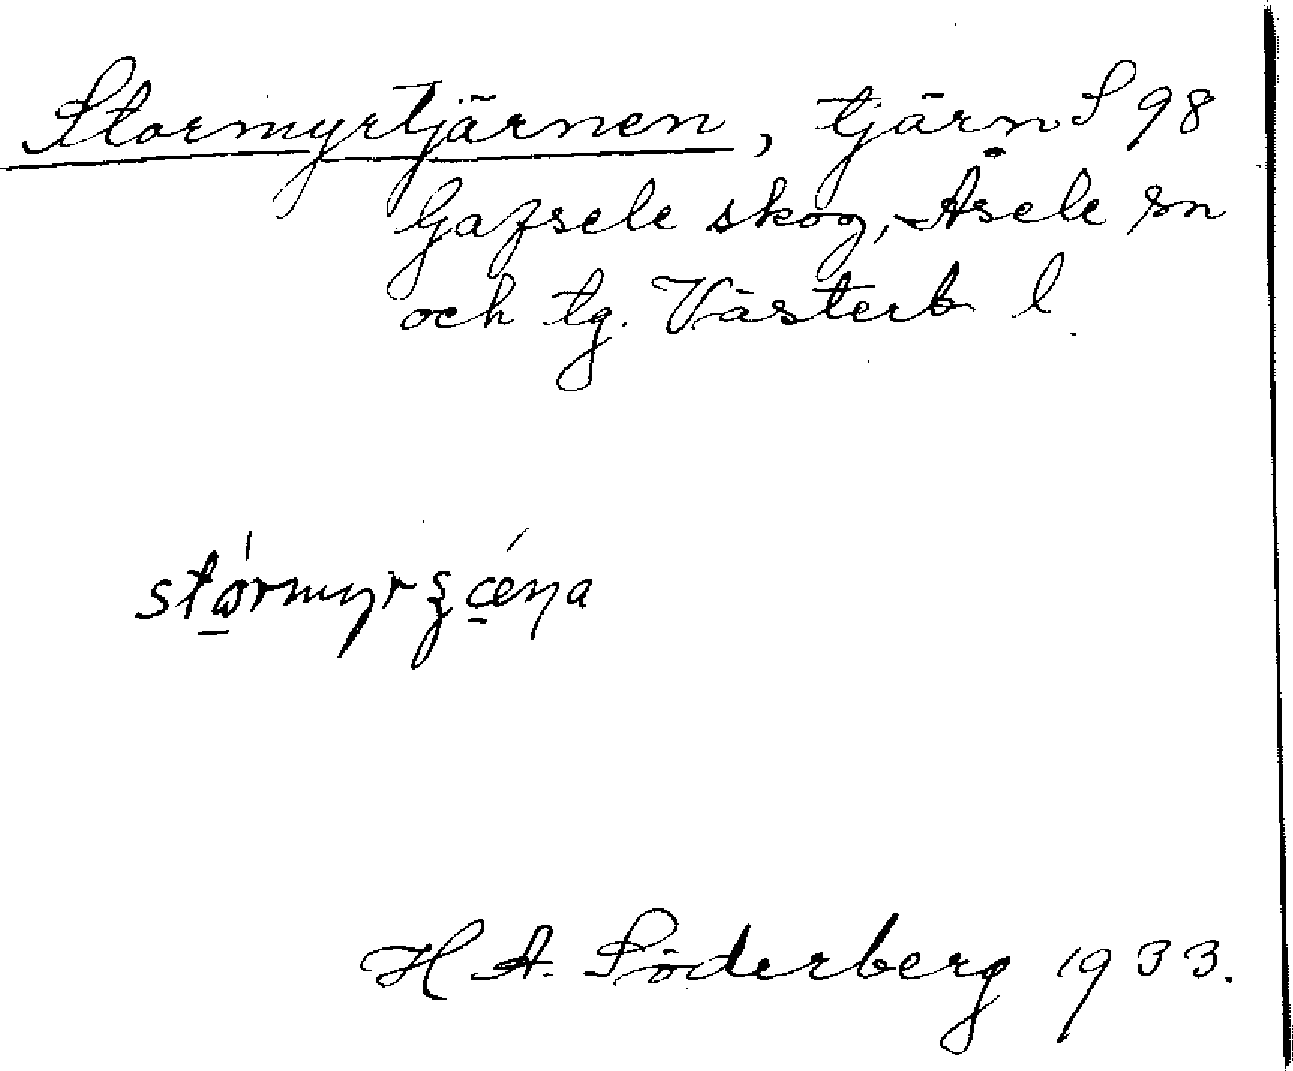 Stormyrtjärnen, tjärn S 98
Gafsele skog, Åsele sn
och tg. Västerb l.
H A. Söderberg 1933.